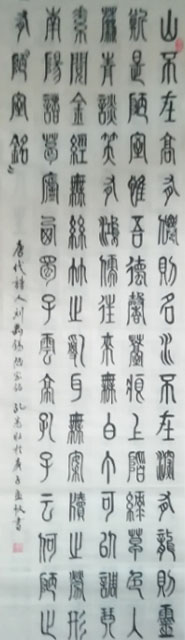 山不在高有僊則名水不在深有龍則靈
斯是陋室惟吾德馨苔痕上階綠草色入
簾青談笑有鴻儒往來無白丁可以調琴
素閱金經無絲竹之亂耳無案牘之勞形
南陽諸葛廬西蜀子雲亭孔子云何陋之
有陋室銘
唐代詩人劉禹錫陋室銘 於庚子孟秋書